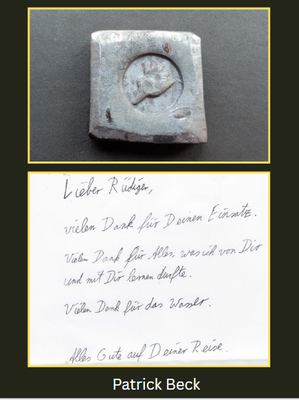 Lieber Rüdiger,
vielen Dank für Deinen Einsatz.
Vielen Dank für Alles, was ich von Dir
und mit Dir lernen durfte.
Vielen Dank für das Wasser.
Alles Gute auf Deiner Reise.
Patrick Beck